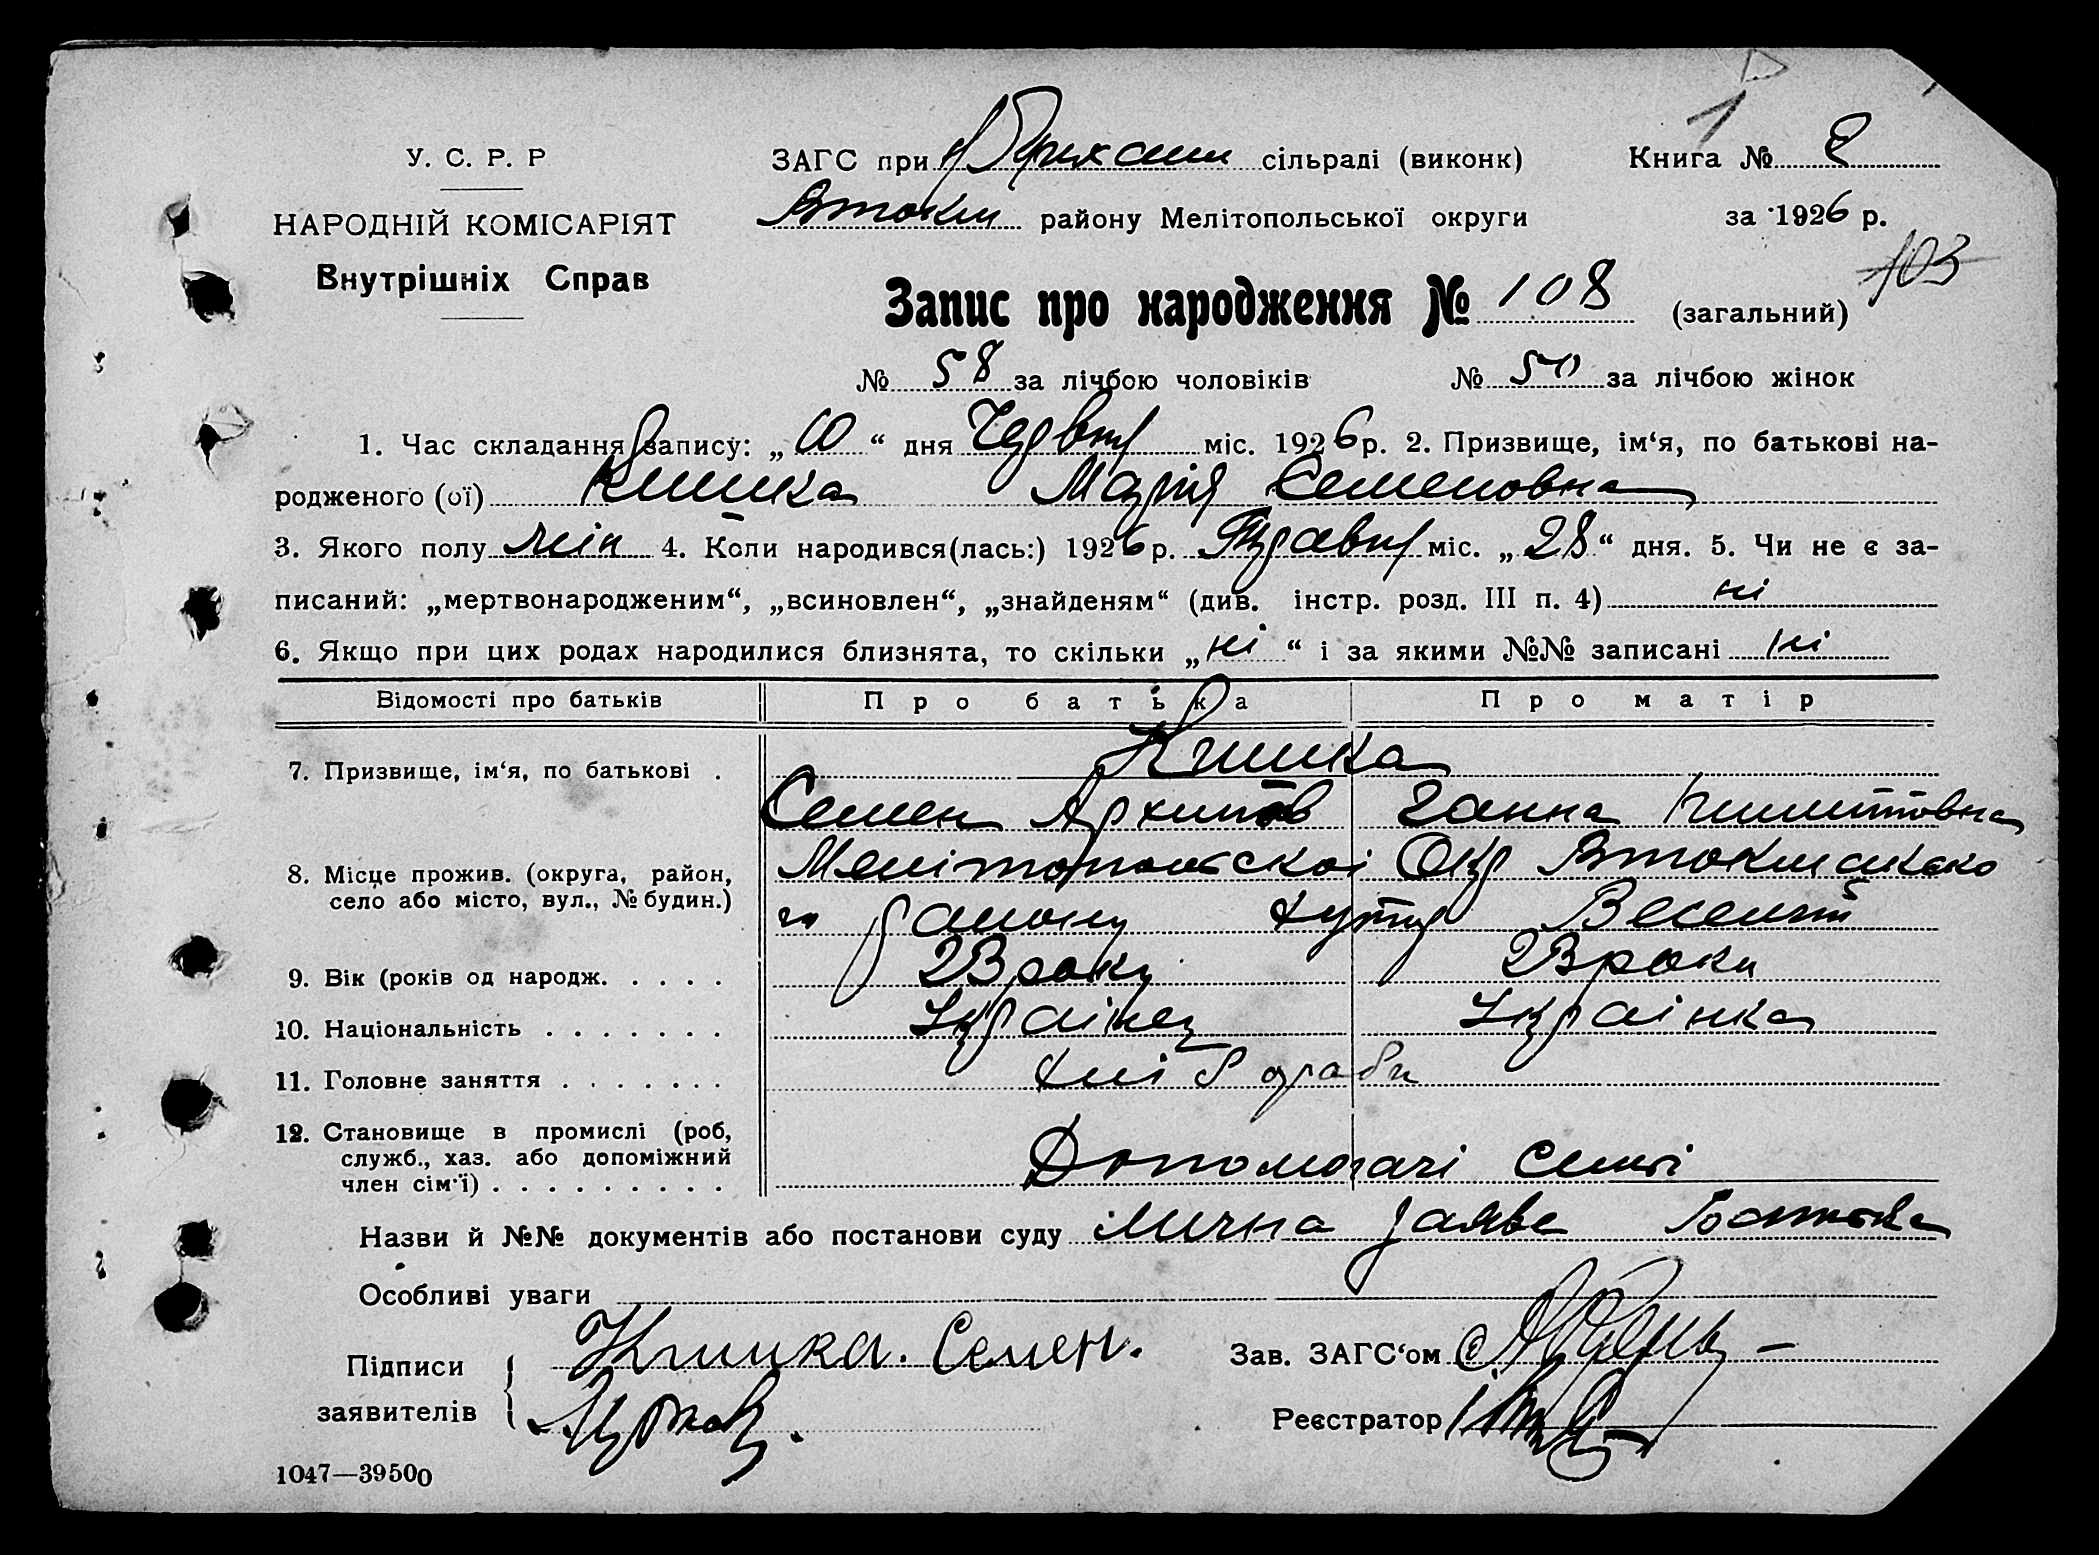 У. С. Р. Р
НАРОДНІЙ КОМІСАРІЯТ
Внутрішніх Справ
ЗАГС при сільраді (виконк)
району Мелітопольської округи
Книга № 8
за 1926 р.
103
Запис про народження № 108 (загальний)
№ 58 за лічбою чоловіків № 50 за лічбою жінок
1. Час складання запису: „10“ дня Червня міс. 1926 р. 2. Призвище, ім‘я, по батькові на-
родженого (ої) Кишка Марія Семеновна
3. Якого полу жін 4. Коли народився(лась:) 1926 р. Травня міс. „28“ дня. 5. Чи не є за-
писаний: „мертвонародженим“, „всиновлен“, „знайденям“ (див. інстр. розд. III п. 4) ні
6. Якщо при цих родах народилися близнята, то скільки „ні“ і за якими №№ записані ні
Відомості про батьків Про батька Про матір
7. Призвище, ім‘я, по батькові . Кишка
Семен Архипов Ганна
8. Місце прожив. (округа, район, Мелітопольскоі Окр
село або місто, вул., № будин.) го району хутір Веселий
9. Вік (років од народж. . . . . 23 роки 23 роки
10. Національність . . . . . . . Українец Українка
11. Головне заняття . . . . . . . Хлібораби
12. Становище в промислі (роб,
служб., хаз. або допоміжний
член сім‘ї) . . . . . . . . . Допомогачі семьі
Назви й №№ документів або постанови суду Лична заява Батька
Особливі уваги
Підписи заявителів Кишка. Семен.
Зав. ЗАГС‘ом
Реєстратор
1047—39500